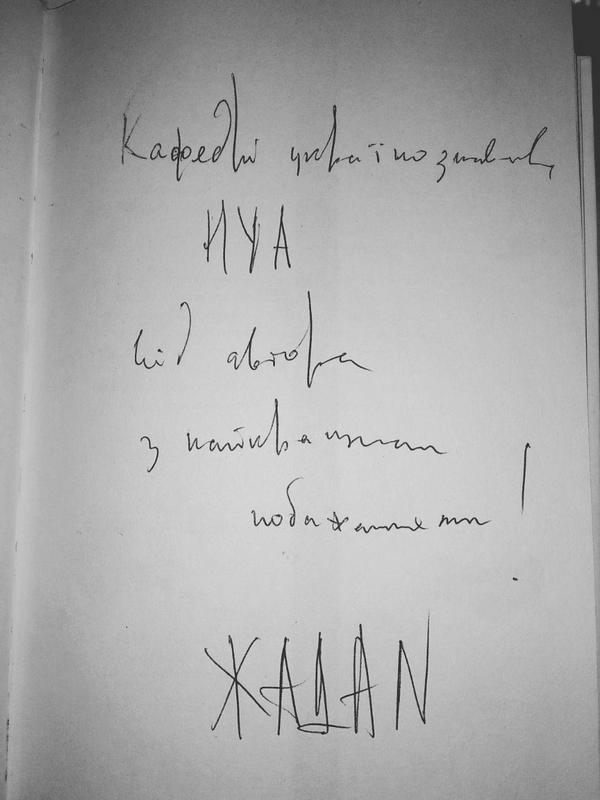 Кафедрі українознавства
НУА
від автора
з найкращими
побажаннями!
ЖАДАN